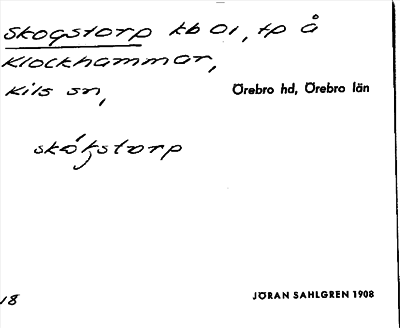 Skogstorp kb 01, tp å
Klockhammar,
Kils sn,
Örebro hd, Örebro län
18
JÖRAN SAHLGREN 1908